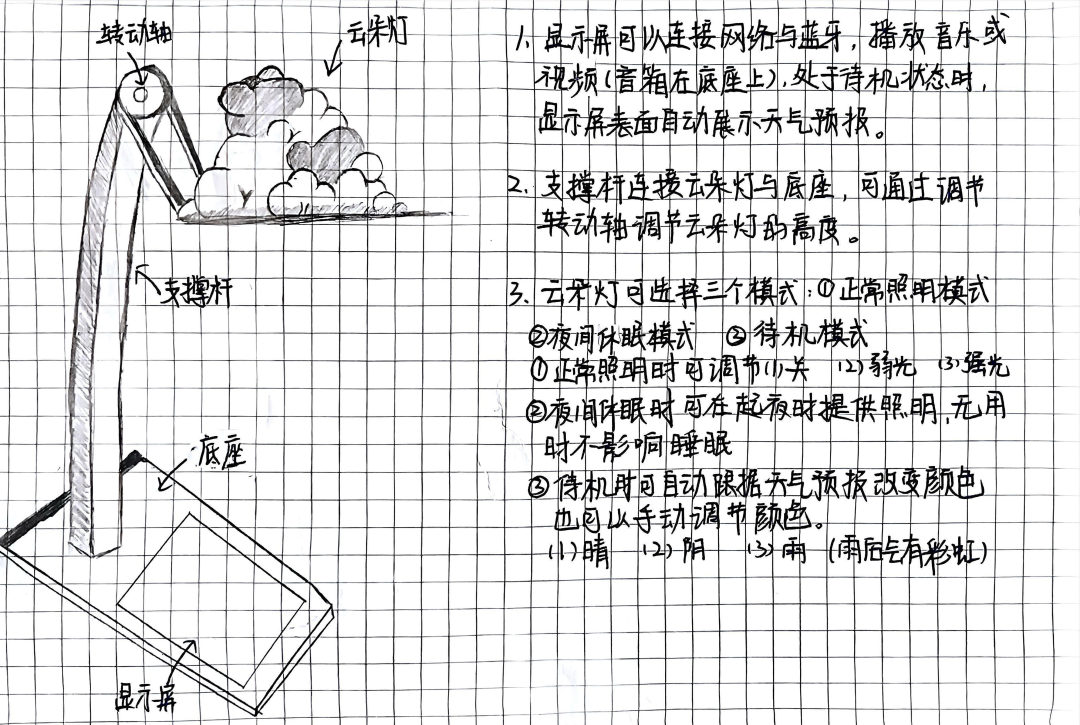 转动轴
云朵灯
支撑杆
底座
显示屏
1. 显示屏可以连接网络与蓝牙，播放音乐或
视频(音箱在底座上)，处于待机状态时，
显示屏表面自动展示天气预报。
2. 支撑杆连接云朵灯与底座，可通过调节
转动轴调节云朵灯的高度。
3. 云朵灯可选择三个模式：①正常照明模式
②夜间休眠模式 ③待机模式
①正常照明时可调节(1)关 (2)弱光 (3)强光
②夜间休眠时可在起夜时提供照明，无用
时不影响睡眠
③待机时可自动跟据天气预报改变颜色
也可以手动调节颜色。
(1)晴 (2)阴 (3)雨 (雨后会有彩虹)